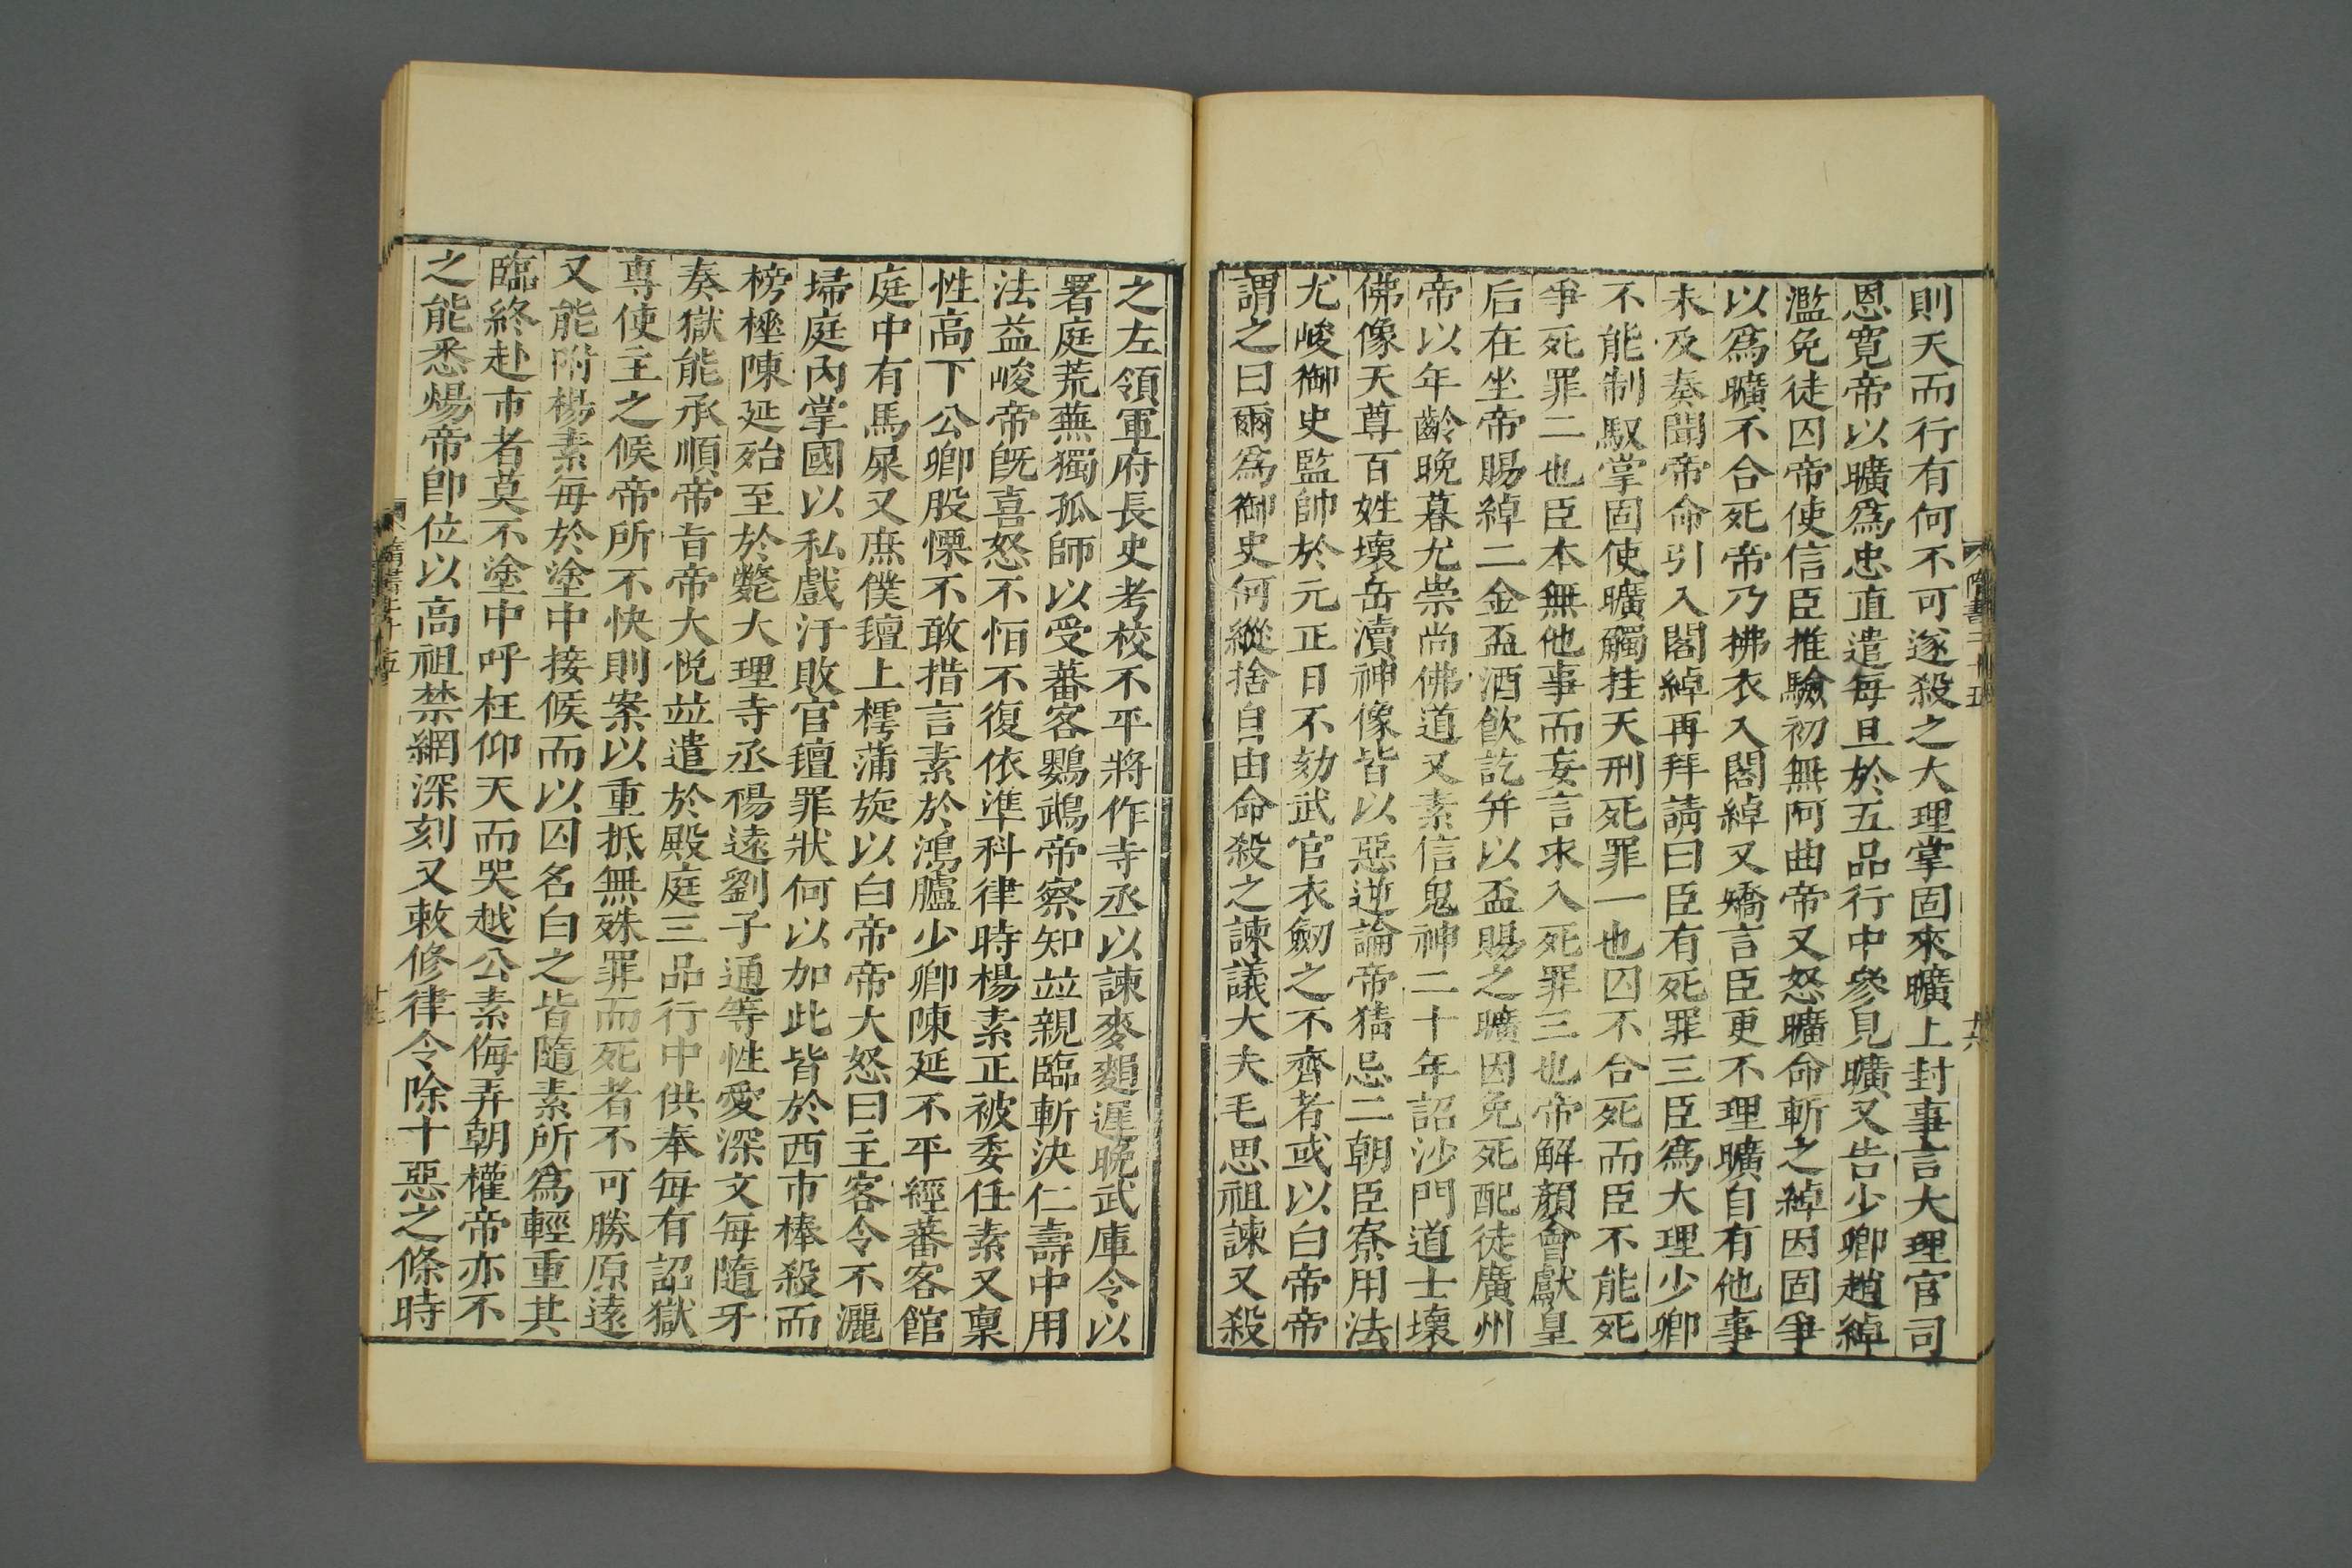 則天而行有何不可遂殺之大理掌固來曠上封事言大理官司
恩寛帝以曠爲忠直遣每旦於五品行中參見曠又告少卿趙綽
濫免徒囚帝使信臣推驗初無阿曲帝又怒曠命斬之綽因固爭
以爲曠不合死帝乃拂衣入閤綽又矯言臣更不理曠自有他事
未及奏聞帝命引入閤綽再拜請曰臣有死罪三臣爲大理少卿
不能制馭掌固使曠觸挂天刑死罪一也囚不合死而臣不能死
爭死罪二也臣本無他事而妄言求入死罪三也帝解顏會獻皇
后在坐帝賜綽二金盃酒飲訖幷以盃賜之曠因免死配徒廣州
帝以年齡晚暮尤崇尚佛道又素信鬼神二十年詔沙門道士壞
佛像天尊百姓壞岳瀆神像皆以惡逆論帝猜忌二朝臣寮用法
尤峻御史監帥於元正日不劾武官衣劒之不齊者或以白帝帝
謂之曰爾爲御史何縱捨自由命殺之諫議大夫毛思祖諫又殺
之左領軍府長史考校不平將作寺丞以諫麥䴰遲晚武庫令以
署庭荒蕪獨孤師以受蕃客鸚鵡帝察知竝親臨斬決仁壽中用
法益峻帝旣喜怒不恒不復依準科律時楊素正被委任素又禀
性高下公卿股慄不敢措言素於鴻臚少卿陳延不平經蕃客館
庭中有馬屎又庶僕氊上樗蒲旋以白帝帝大怒曰主客令不灑
掃庭內掌國以私戲汙敗官氊罪狀何以加此皆於西市棒殺而
榜棰陳延殆至於斃大理寺丞楊遠劉子通等性愛深文每隨牙
奏獄能承順帝旨帝大悅竝遣於殿庭三品行中供奉每有詔獄
專使主之候帝所不快則案以重抵無殊罪而死者不可勝原遠
又能附楊素每於塗中接候而以囚名白之皆隨素所爲輕重其
臨終赴市者莫不塗中呼枉仰天而哭越公素侮弄朝權帝亦不
之能悉煬帝卽位以高祖禁網深刻又敕修律令除十惡之條時